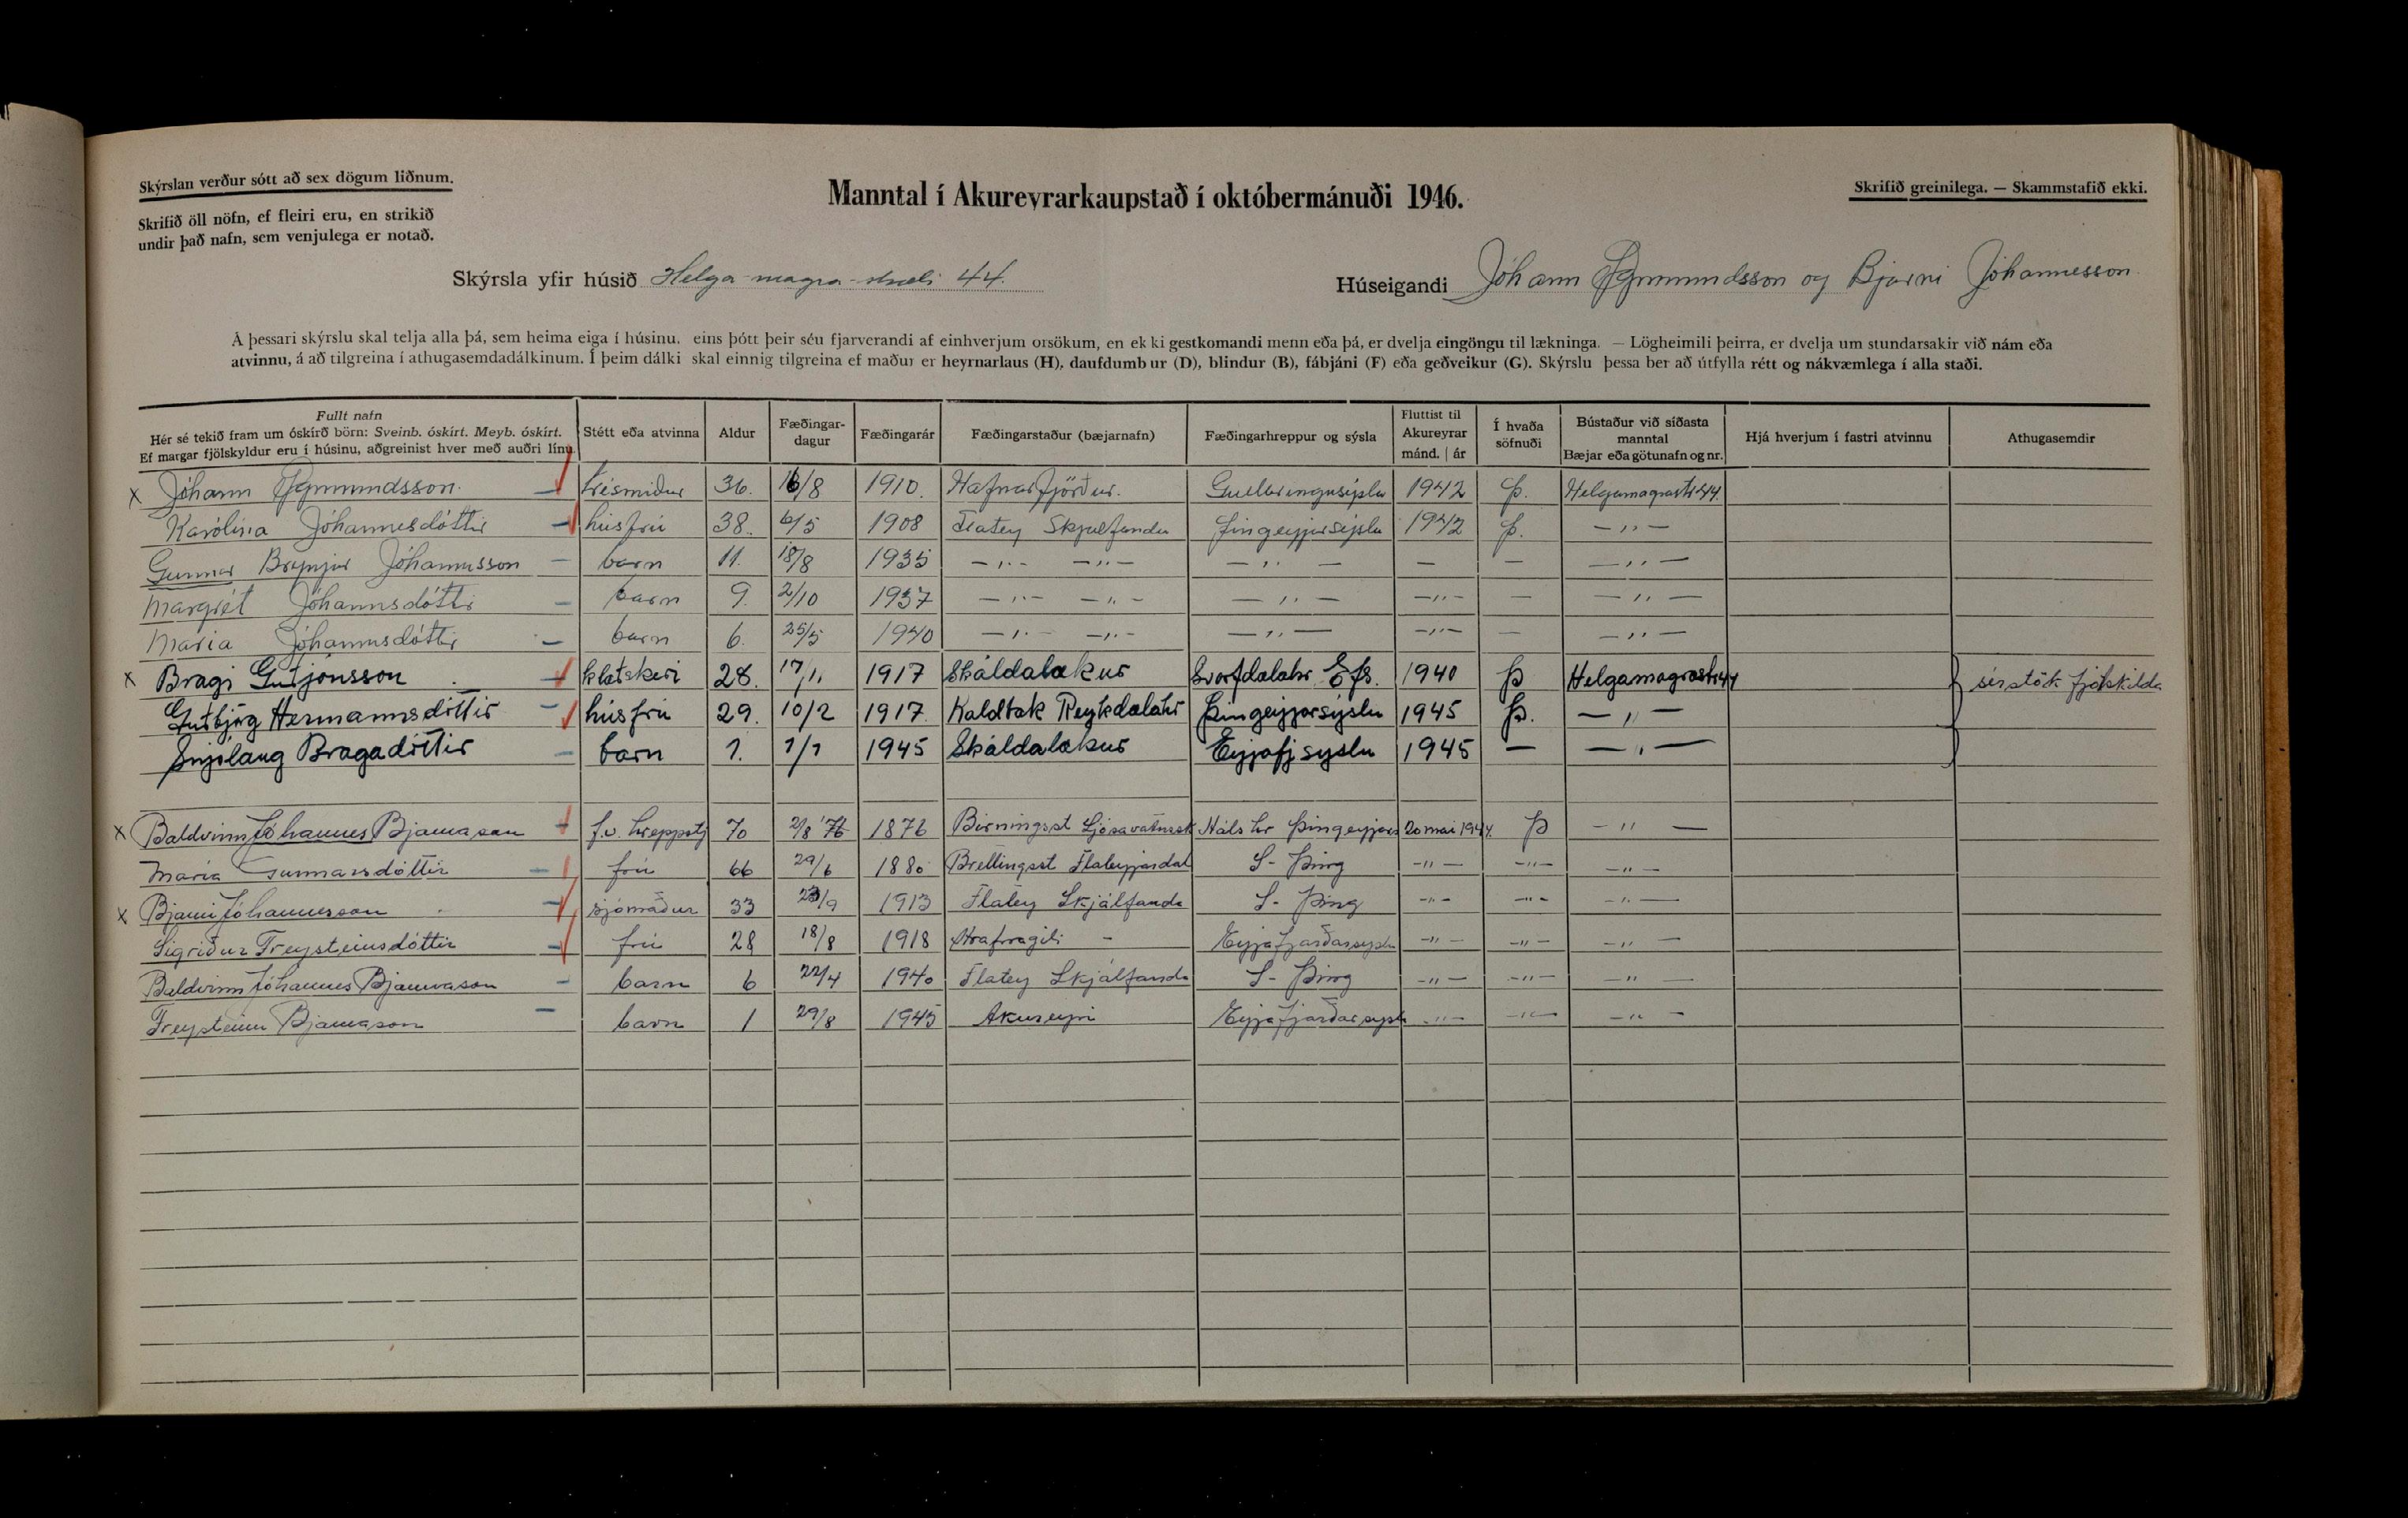 Skýrslan verður sótt að sex dögum liðnum.
Skrifið öll nöfn, ef fleiri eru, en strikið
undir það nafn, sem venjulega er notað.
Manntal í Akureyrarkaupstað í októbermánuði 1946.
Skrifið greinilega. — Skammstafið ekki.
Skýrsla yfir húsið Helga-magra-stræti 44.
Húseigandi Jóhann Ögmundsson og Bjarni Jóhannesson
Á þessari skýrslu skal telja alla þá, sem heima eiga í húsinu, eins þótt þeir séu fjarverandi af einhverjum orsökum, en ekki gestkomandi menn eða þá, er dvelja eingöngu til lækninga. — Lögheimili þeirra, er dvelja um stundarsakir við nám eða
atvinnu, á að tilgreina í athugasemdadálkinum. Í þeim dálki skal einnig tilgreina ef maður er heyrnarlaus (H), daufdumbur (D), blindur (B), fábjáni (F) eða geðveikur (G). Skýrslu þessa ber að útfylla rétt og nákvæmlega í alla staði.
Fullt nafn
Hér sé tekið fram um óskírð börn: Sveinb. óskírt. Meyb. óskírt.
Ef margar fjölskyldur eru í húsinu, aðgreinist hver með auðri línu.
Stétt eða atvinna
Aldur
Fæðingar-
dagur
Fæðingarár
Fæðingarstaður (bæjarnafn)
Fæðingarhreppur og sýsla
Fluttist til
Akureyrar
mánd. | ár
Í hvaða
söfnuði
Bústaður við síðasta
manntal
Bæjar eða götunafn og nr.
Hjá hverjum í fastri atvinnu
Athugasemdir
x Jóhann Ögmundsson. trésmiður 36. 16/8 1910. Hafnarfjörður. Gullbringusýslu 1942 Þ. Helgamagrastr 44.
Karólína Jóhannesdóttir húsfrú 38. 6/5 1908 Flatey Skjálfanda Þingeyjarsýslu 1942 Þ. — „ —
Gunnar Brynjar Jóhannsson barn 11. 18/8 1935 — „ — — „ — — „ — — — — „ —
Margrét Jóhannsdóttir barn 9. 2/10 1937 — „ — — „ — — „ — — „ — — — „ —
María Jóhannsdóttir barn 6. 25/5 1940 — „ — — „ — — „ — — „ — — — „ —
x Bragi Guðjónsson klæðskeri 28. 17/11 1917 Skáldalækur Svarfdælahr. Efs. 1940 Þ Helgamagrastr 44 sérstök fjölskilda
Guðbjörg Hermannsdóttir húsfrú 29. 10/2 1917 Kaldbak Reykdælahr Þingeyjarsýslu 1945 Þ. — „ —
Snjólaug Bragadóttir barn 1. 7/7 1945 Skáldalækur Eyjafj sýslu 1945 — — „ —
x Baldvinn Jóhannes Bjarnason f.v. hreppstj 70 2/8 '76 1876 Birningsst Ljósavatnssk Háls hr Þingeyjars 20 mai 1944. Þ — „ —
María Gunnarsdóttir frú 66 29/6 1880 Brettingsst Flateyjardal S- Þing — „ — — „ — — „ —
x Bjarni Jóhannesson sjómaður 33 23/9 1913 Flatey Skjálfanda S- Þing — „ — — „ — — „ —
Sigríður Freysteinsdóttir frú 28 18/8 1918 Hrafnagili - Eyjafjarðarsýslu — „ — — „ — — „ —
Baldvinn Jóhannes Bjarnason barn 6 22/4 1940 Flatey Skjálfanda S- Þing — „ — — „ — — „ —
Freysteinn Bjarnason barn 1 29/8 1945 Akureyri Eyjafjarðarsýslu — „ — — „ — — „ —